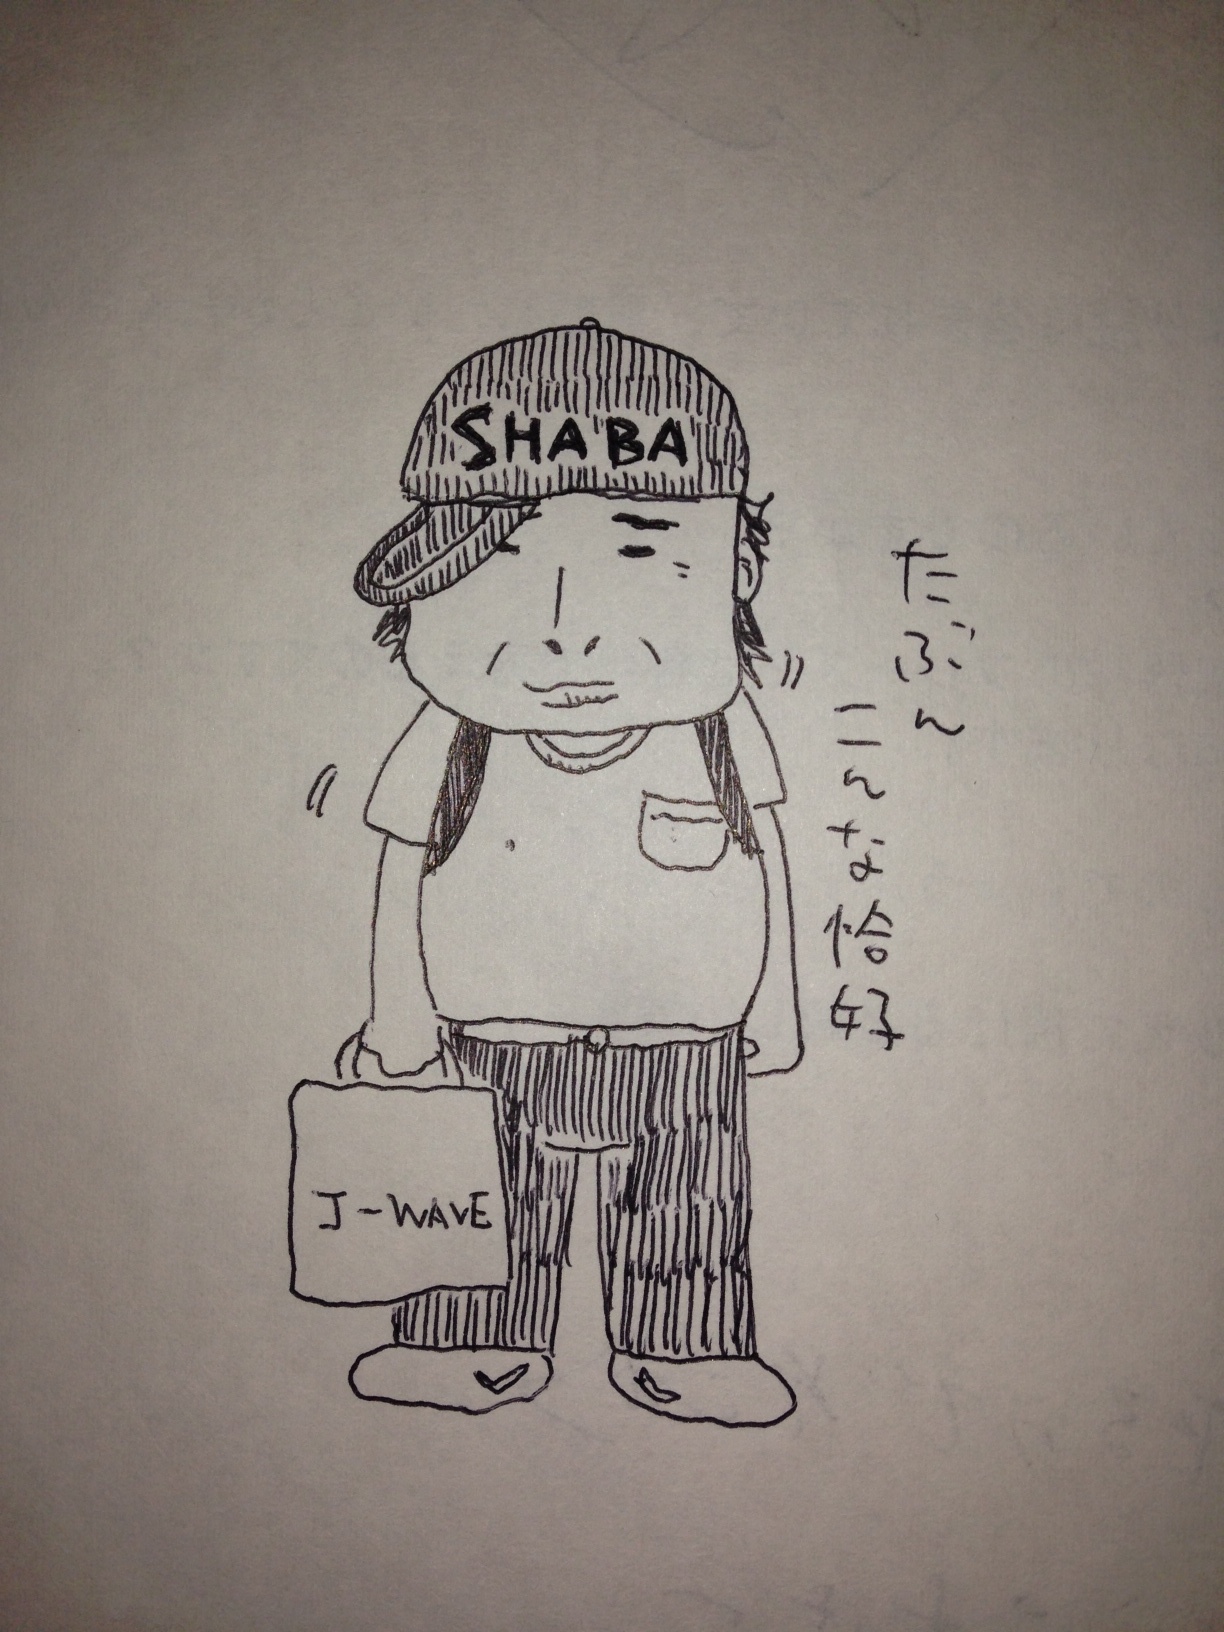 SHABA
たぶん
こんな恰好
J-WAVE